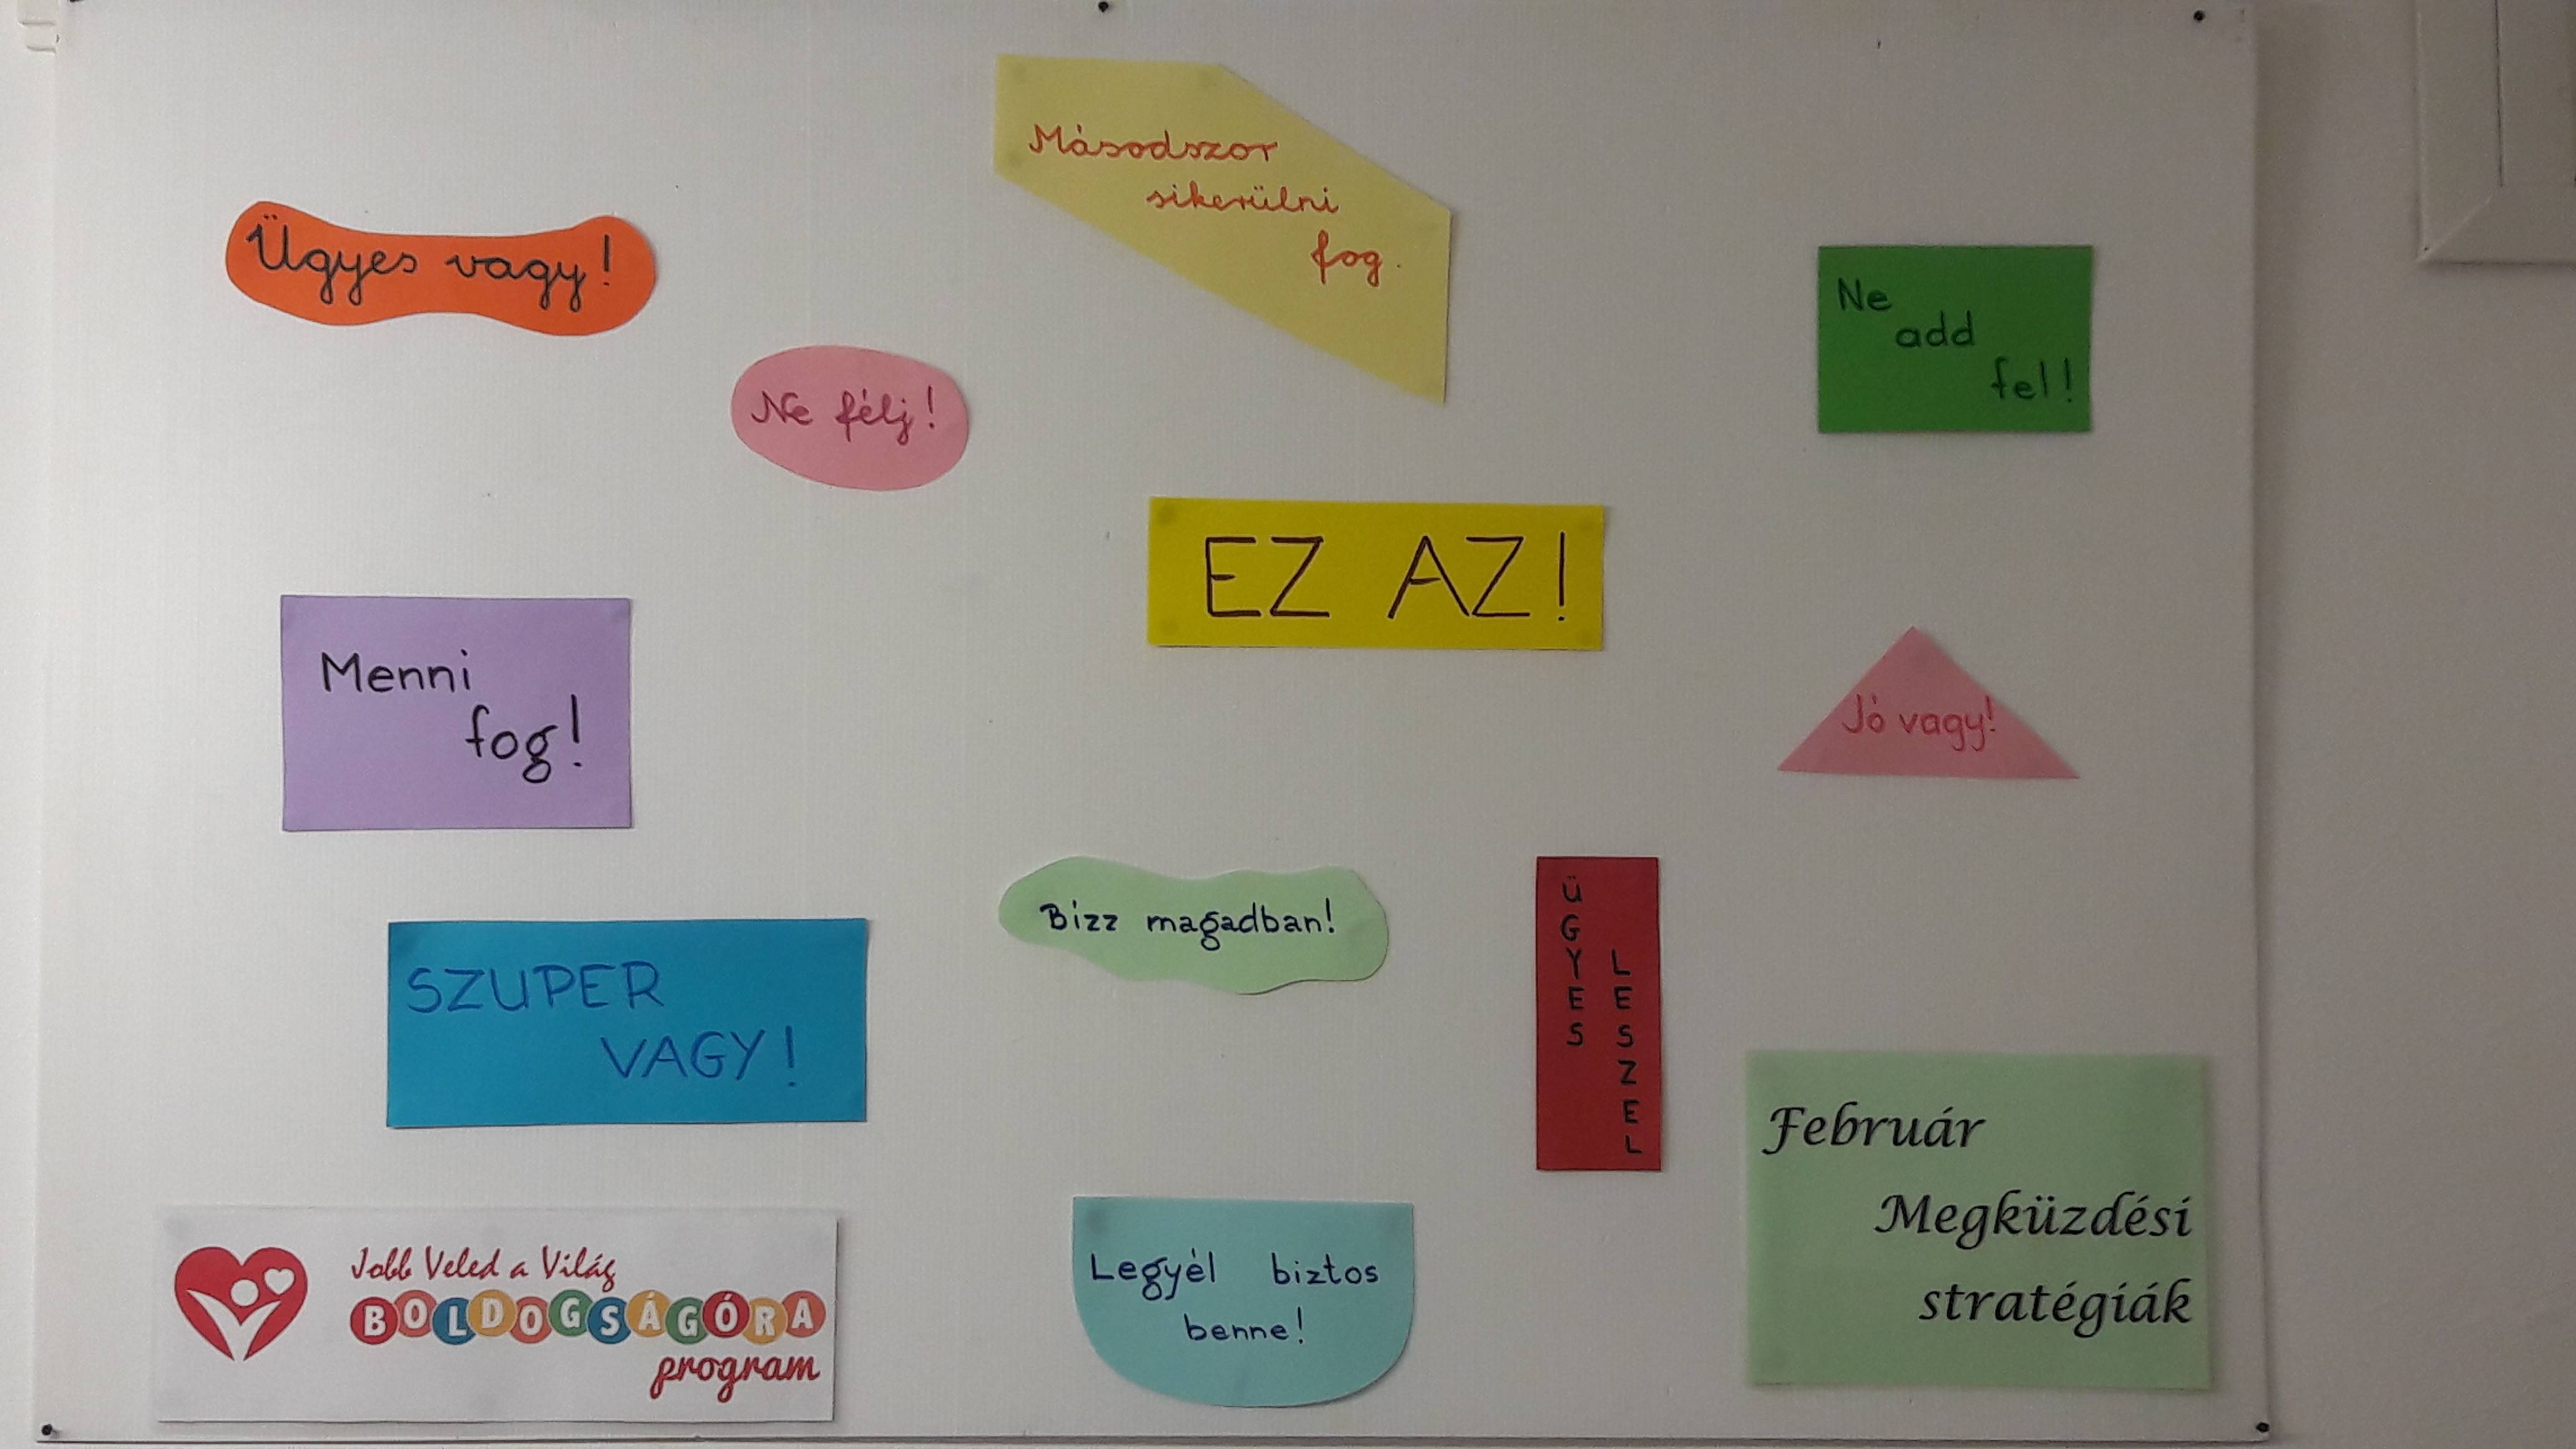 Másodszor
sikerülni
fog.
Ügyes vagy!
Ne
add
fel!
Ne félj!
EZ AZ!
Menni
fog!
Jó vagy!
Bizz magadban!
ÜGYES
LESZEL
SZUPER
VAGY!
Február
Megküzdési
stratégiák
Jobb Veled a Világ
BOLDOGSÁGÓRA
program
Legyél biztos
benne!